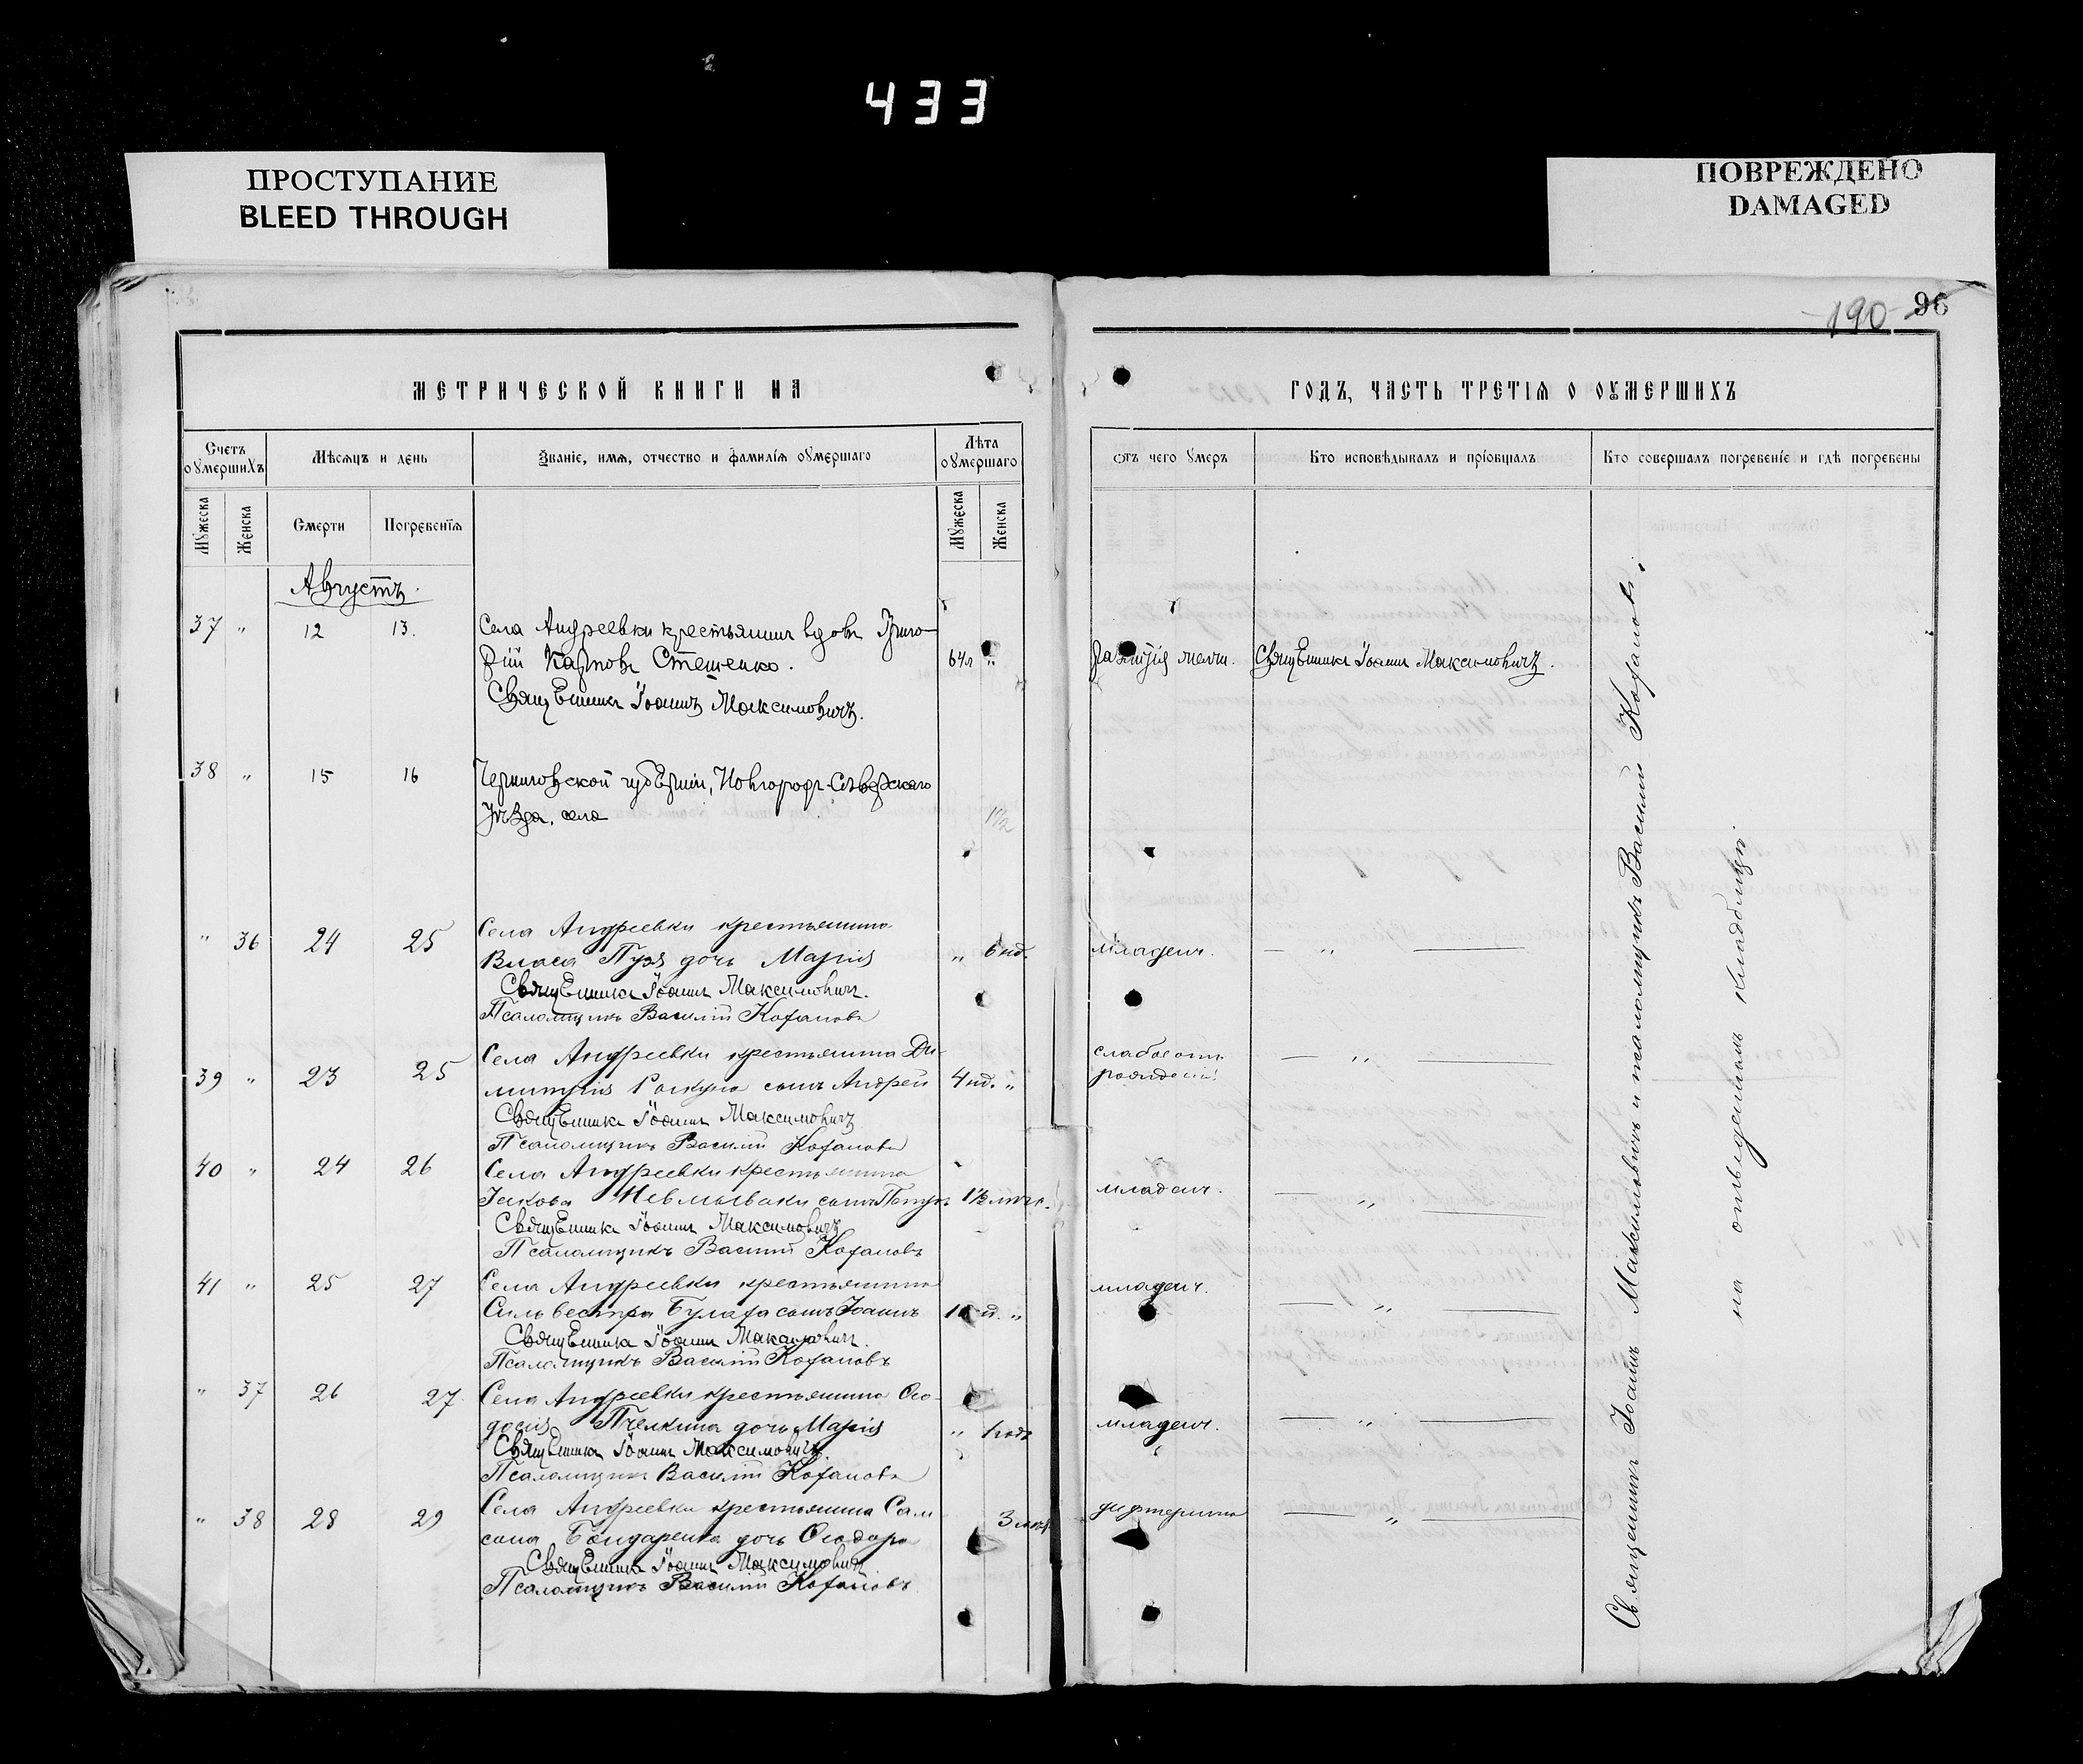 433
ПРОСТУПАНИЕ
BLEED THROUGH
ПОВРЕЖДЕНО
DAMAGED
190
96
МЕТРИЧЕСКОЙ КНИГИ НА
ГОДЪ, ЧАСТЬ ТРЕТІѦ О ОУМЕРШИХЪ
Счетъ оумершихъ
Мѣсяцъ и день
Званіе, имя, отчество и фамилія оумершаго
Лѣта оумершаго
Отъ чего умеръ
Кто исповѣдывалъ и пріобщалъ
Кто совершалъ погребеніе и гдѣ погребены
Мужеска
Женска
Смерти
Погребенія
Мужеска
Женска
Августъ.
37 " 12 13. Села Андреевки крестьянинъ вдовъ Григо-
рій Карповъ Стешенко. 64л "
Священникъ Іоаннъ Максимовичъ.
Священникъ Іоаннъ Максимовичъ.
38 " 15 16 Черниговской губерніи, Новгородъ-Сѣверскаго
уѣзда, села 1½
" 36 24 25 Села Андреевки крестьянина
Власа дочь Марія " 6 нд. младенч. — " —
Священникъ Іоаннъ Максимовичъ.
Псаломщикъ Василій Кохановъ
39 " 23 25 Села Андреевки крестьянина Ди-
митрія сынъ Андрей 4 нд. " слабость рожденія — " —
Священникъ Іоаннъ Максимовичъ
Псаломщикъ Василій Кохановъ
40 " 24 26 Села Андреевки крестьянина
Іакова Невмываки сынъ Петръ 1½ мѣс. младенч. — " —
Священникъ Іоаннъ Максимовичъ
Псаломщикъ Василій Кохановъ
41 " 25 27 Села Андреевки крестьянина
Сильвестра Булаха сынъ Іоаннъ " младенч. — " —
Священникъ Іоаннъ Максимовичъ.
Псаломщикъ Василій Кохановъ
" 37 26 27 Села Андреевки крестьянина Ѳео-
досія Пчелкина дочь Марія " 1 годъ младенч. — " —
Священникъ Іоаннъ Максимовичъ
Псаломщикъ Василій Кохановъ
" 38 28 29 Села Андреевки крестьянина Сам-
сона Бондаренка дочь Ѳеодора 3 дифтерита — " —
Священникъ Іоаннъ Максимовичъ
Псаломщикъ Василій Кохановъ
Священникъ Іоаннъ Максимовичъ и псаломщикъ Василій Кохановъ.
на отведенномъ кладбищѣ